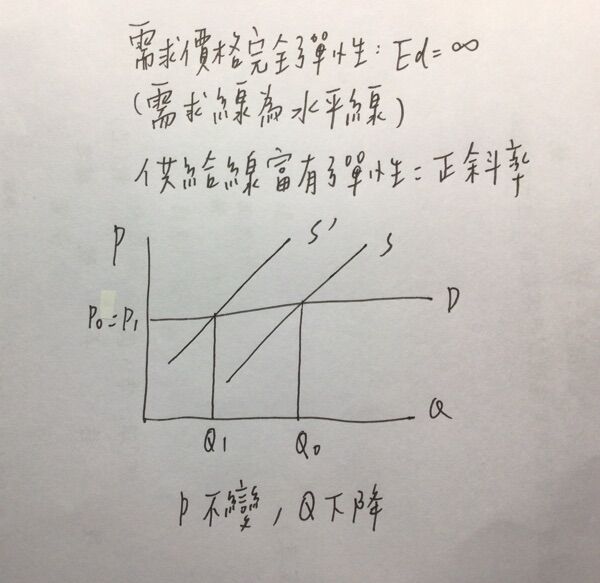 需求價格完全彈性: Ed=∞
(需求線為水平線)
供給線富有彈性=正斜率
P
S'
S
P₀=P₁
D
Q₁
Q₀
Q
P不變, Q下降